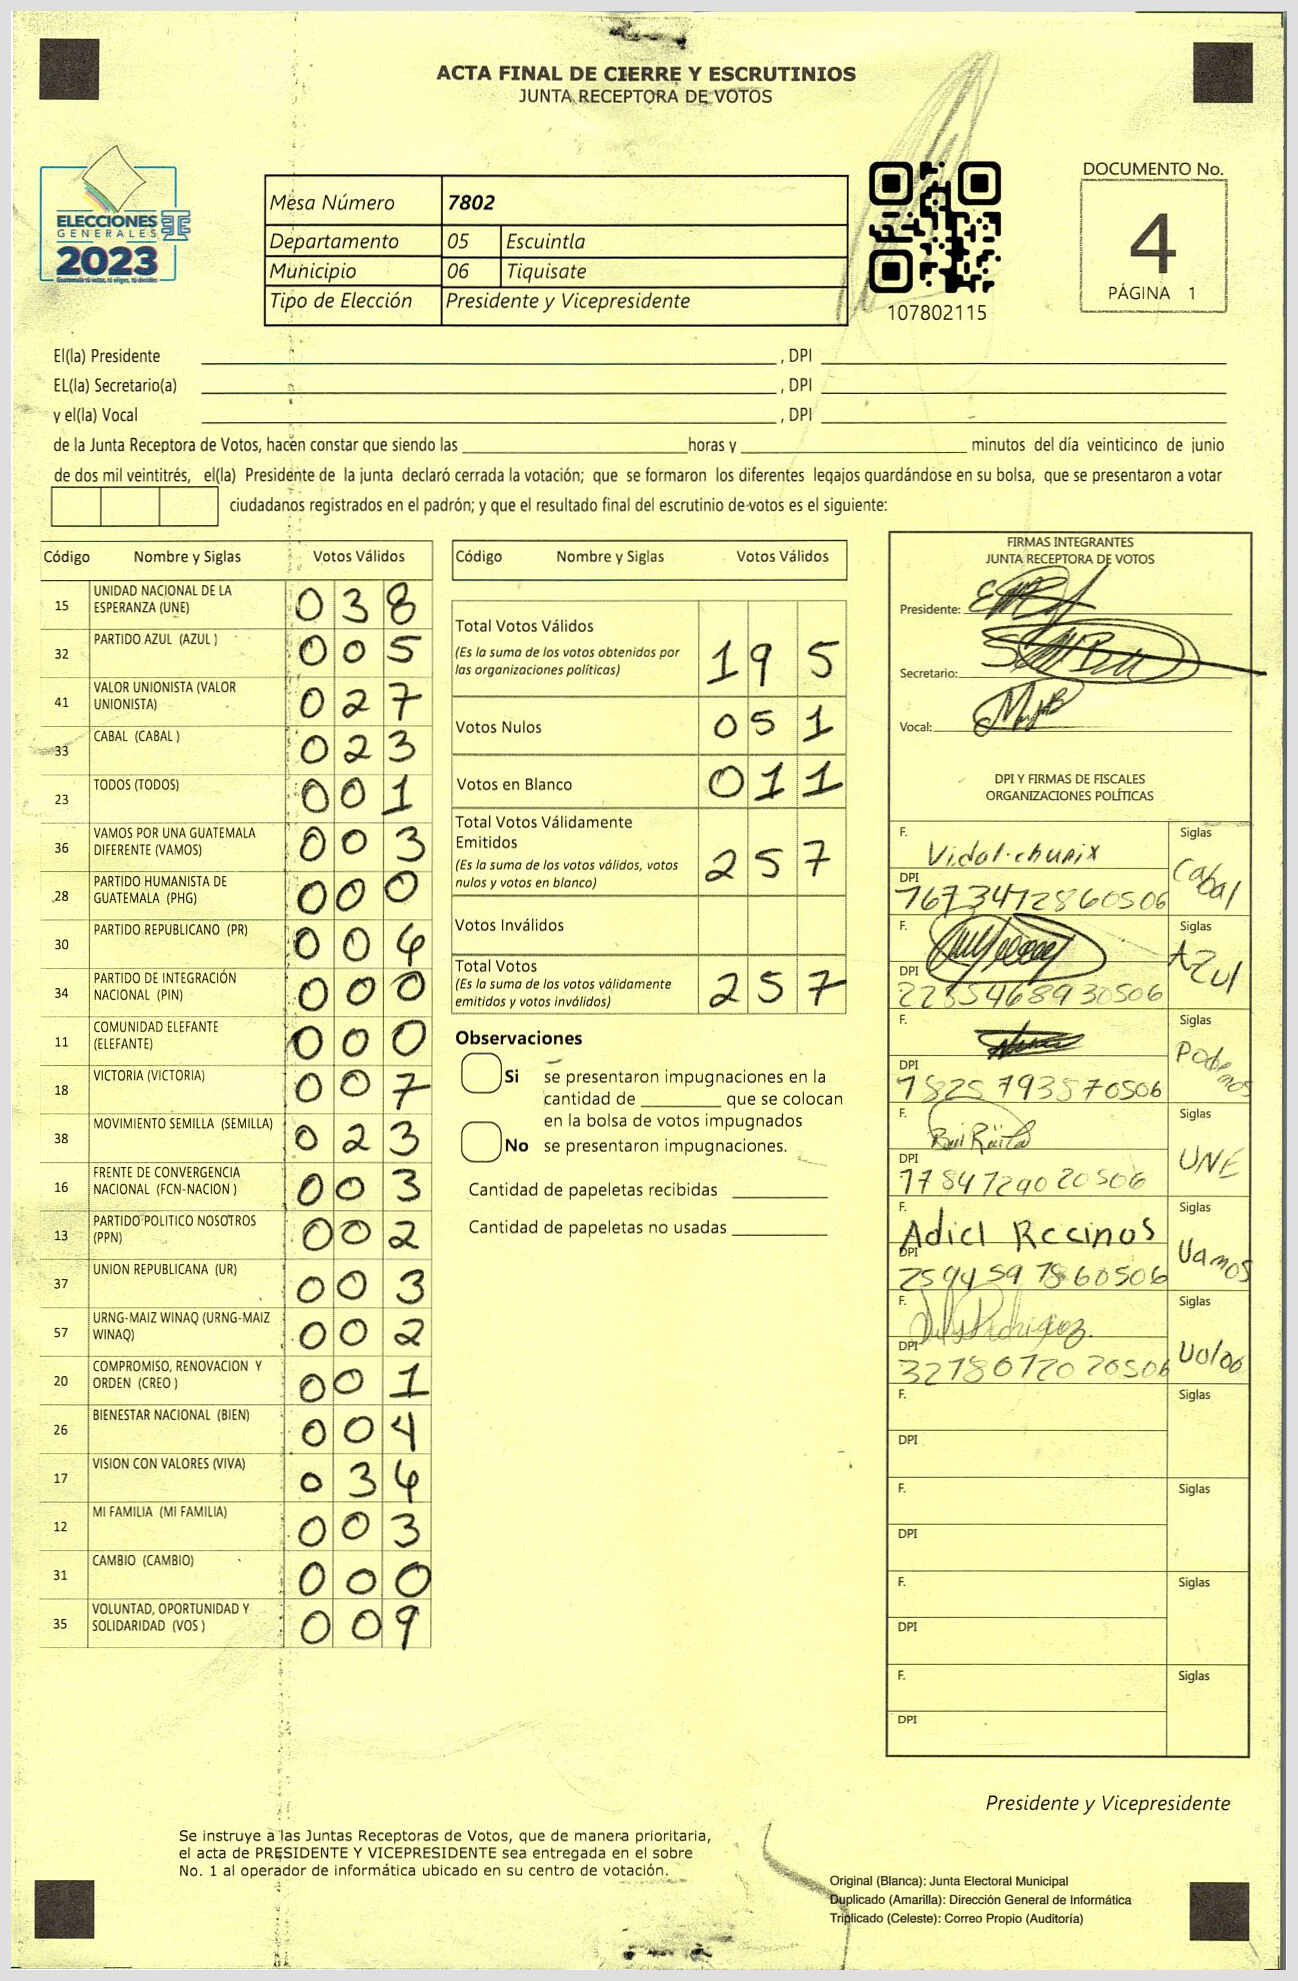 ACTA FINAL DE CIERRE Y ESCRUTINIOS
JUNTA RECEPTORA DE VOTOS
ELECCIONES
GENERALES
2023
Mesa Número 7802
Departamento 05 Escuintla
Municipio 06 Tiquisate
Tipo de Elección Presidente y Vicepresidente
107802115
DOCUMENTO No.
4
PÁGINA 1
El(la) Presidente , DPI
EL(la) Secretario(a) , DPI
y el(la) Vocal , DPI
de la Junta Receptora de Votos, hacen constar que siendo las horas y minutos del día veinticinco de junio
de dos mil veintitrés, el(la) Presidente de la junta declaró cerrada la votación; que se formaron los diferentes legajos quardándose en su bolsa, que se presentaron a votar
ciudadanos registrados en el padrón; y que el resultado final del escrutinio de votos es el siguiente:
Código Nombre y Siglas Votos Válidos
15 UNIDAD NACIONAL DE LA ESPERANZA (UNE) 038
32 PARTIDO AZUL (AZUL ) 005
41 VALOR UNIONISTA (VALOR UNIONISTA) 027
33 CABAL (CABAL ) 023
23 TODOS (TODOS) 001
36 VAMOS POR UNA GUATEMALA DIFERENTE (VAMOS) 003
28 PARTIDO HUMANISTA DE GUATEMALA (PHG) 000
30 PARTIDO REPUBLICANO (PR) 004
34 PARTIDO DE INTEGRACIÓN NACIONAL (PIN) 000
11 COMUNIDAD ELEFANTE (ELEFANTE) 000
18 VICTORIA (VICTORIA) 007
38 MOVIMIENTO SEMILLA (SEMILLA) 023
16 FRENTE DE CONVERGENCIA NACIONAL (FCN-NACION ) 003
13 PARTIDO POLITICO NOSOTROS (PPN) 002
37 UNION REPUBLICANA (UR) 003
57 URNG-MAIZ WINAQ (URNG-MAIZ WINAQ) 002
20 COMPROMISO, RENOVACION Y ORDEN (CREO ) 001
26 BIENESTAR NACIONAL (BIEN) 004
17 VISION CON VALORES (VIVA) 034
12 MI FAMILIA (MI FAMILIA) 003
31 CAMBIO (CAMBIO) 000
35 VOLUNTAD, OPORTUNIDAD Y SOLIDARIDAD (VOS ) 009
Código Nombre y Siglas Votos Válidos
Total Votos Válidos
(Es la suma de los votos obtenidos por
las organizaciones políticas) 195
Votos Nulos 051
Votos en Blanco 011
Total Votos Válidamente
Emitidos
(Es la suma de los votos válidos, votos
nulos y votos en blanco) 257
Votos Inválidos
Total Votos
(Es la suma de los votos válidamente
emitidos y votos inválidos) 257
Observaciones
Si se presentaron impugnaciones en la
cantidad de que se colocan
en la bolsa de votos impugnados
No se presentaron impugnaciones.
Cantidad de papeletas recibidas
Cantidad de papeletas no usadas
FIRMAS INTEGRANTES
JUNTA RECEPTORA DE VOTOS
Presidente:
Secretario:
Vocal:
DPI Y FIRMAS DE FISCALES
ORGANIZACIONES POLÍTICAS
F. Vidal Siglas
DPI 1673472860506 Cabal
F. Siglas
DPI 2235468930506 Azul
F. Siglas
DPI 1825793570506 Podemos
F. Siglas
DPI 1784729020506 UNE
F. Adiel Recinos Siglas
DPI 2594591860506 Vamos
F. Siglas
DPI 3218072020506
F. Siglas
DPI
F. Siglas
DPI
F. Siglas
DPI
F. Siglas
DPI
Presidente y Vicepresidente
Se instruye a las Juntas Receptoras de Votos, que de manera prioritaria,
el acta de PRESIDENTE Y VICEPRESIDENTE sea entregada en el sobre
No. 1 al operador de informática ubicado en su centro de votación.
Original (Blanca): Junta Electoral Municipal
Duplicado (Amarilla): Dirección General de Informática
Triplicado (Celeste): Correo Propio (Auditoría)